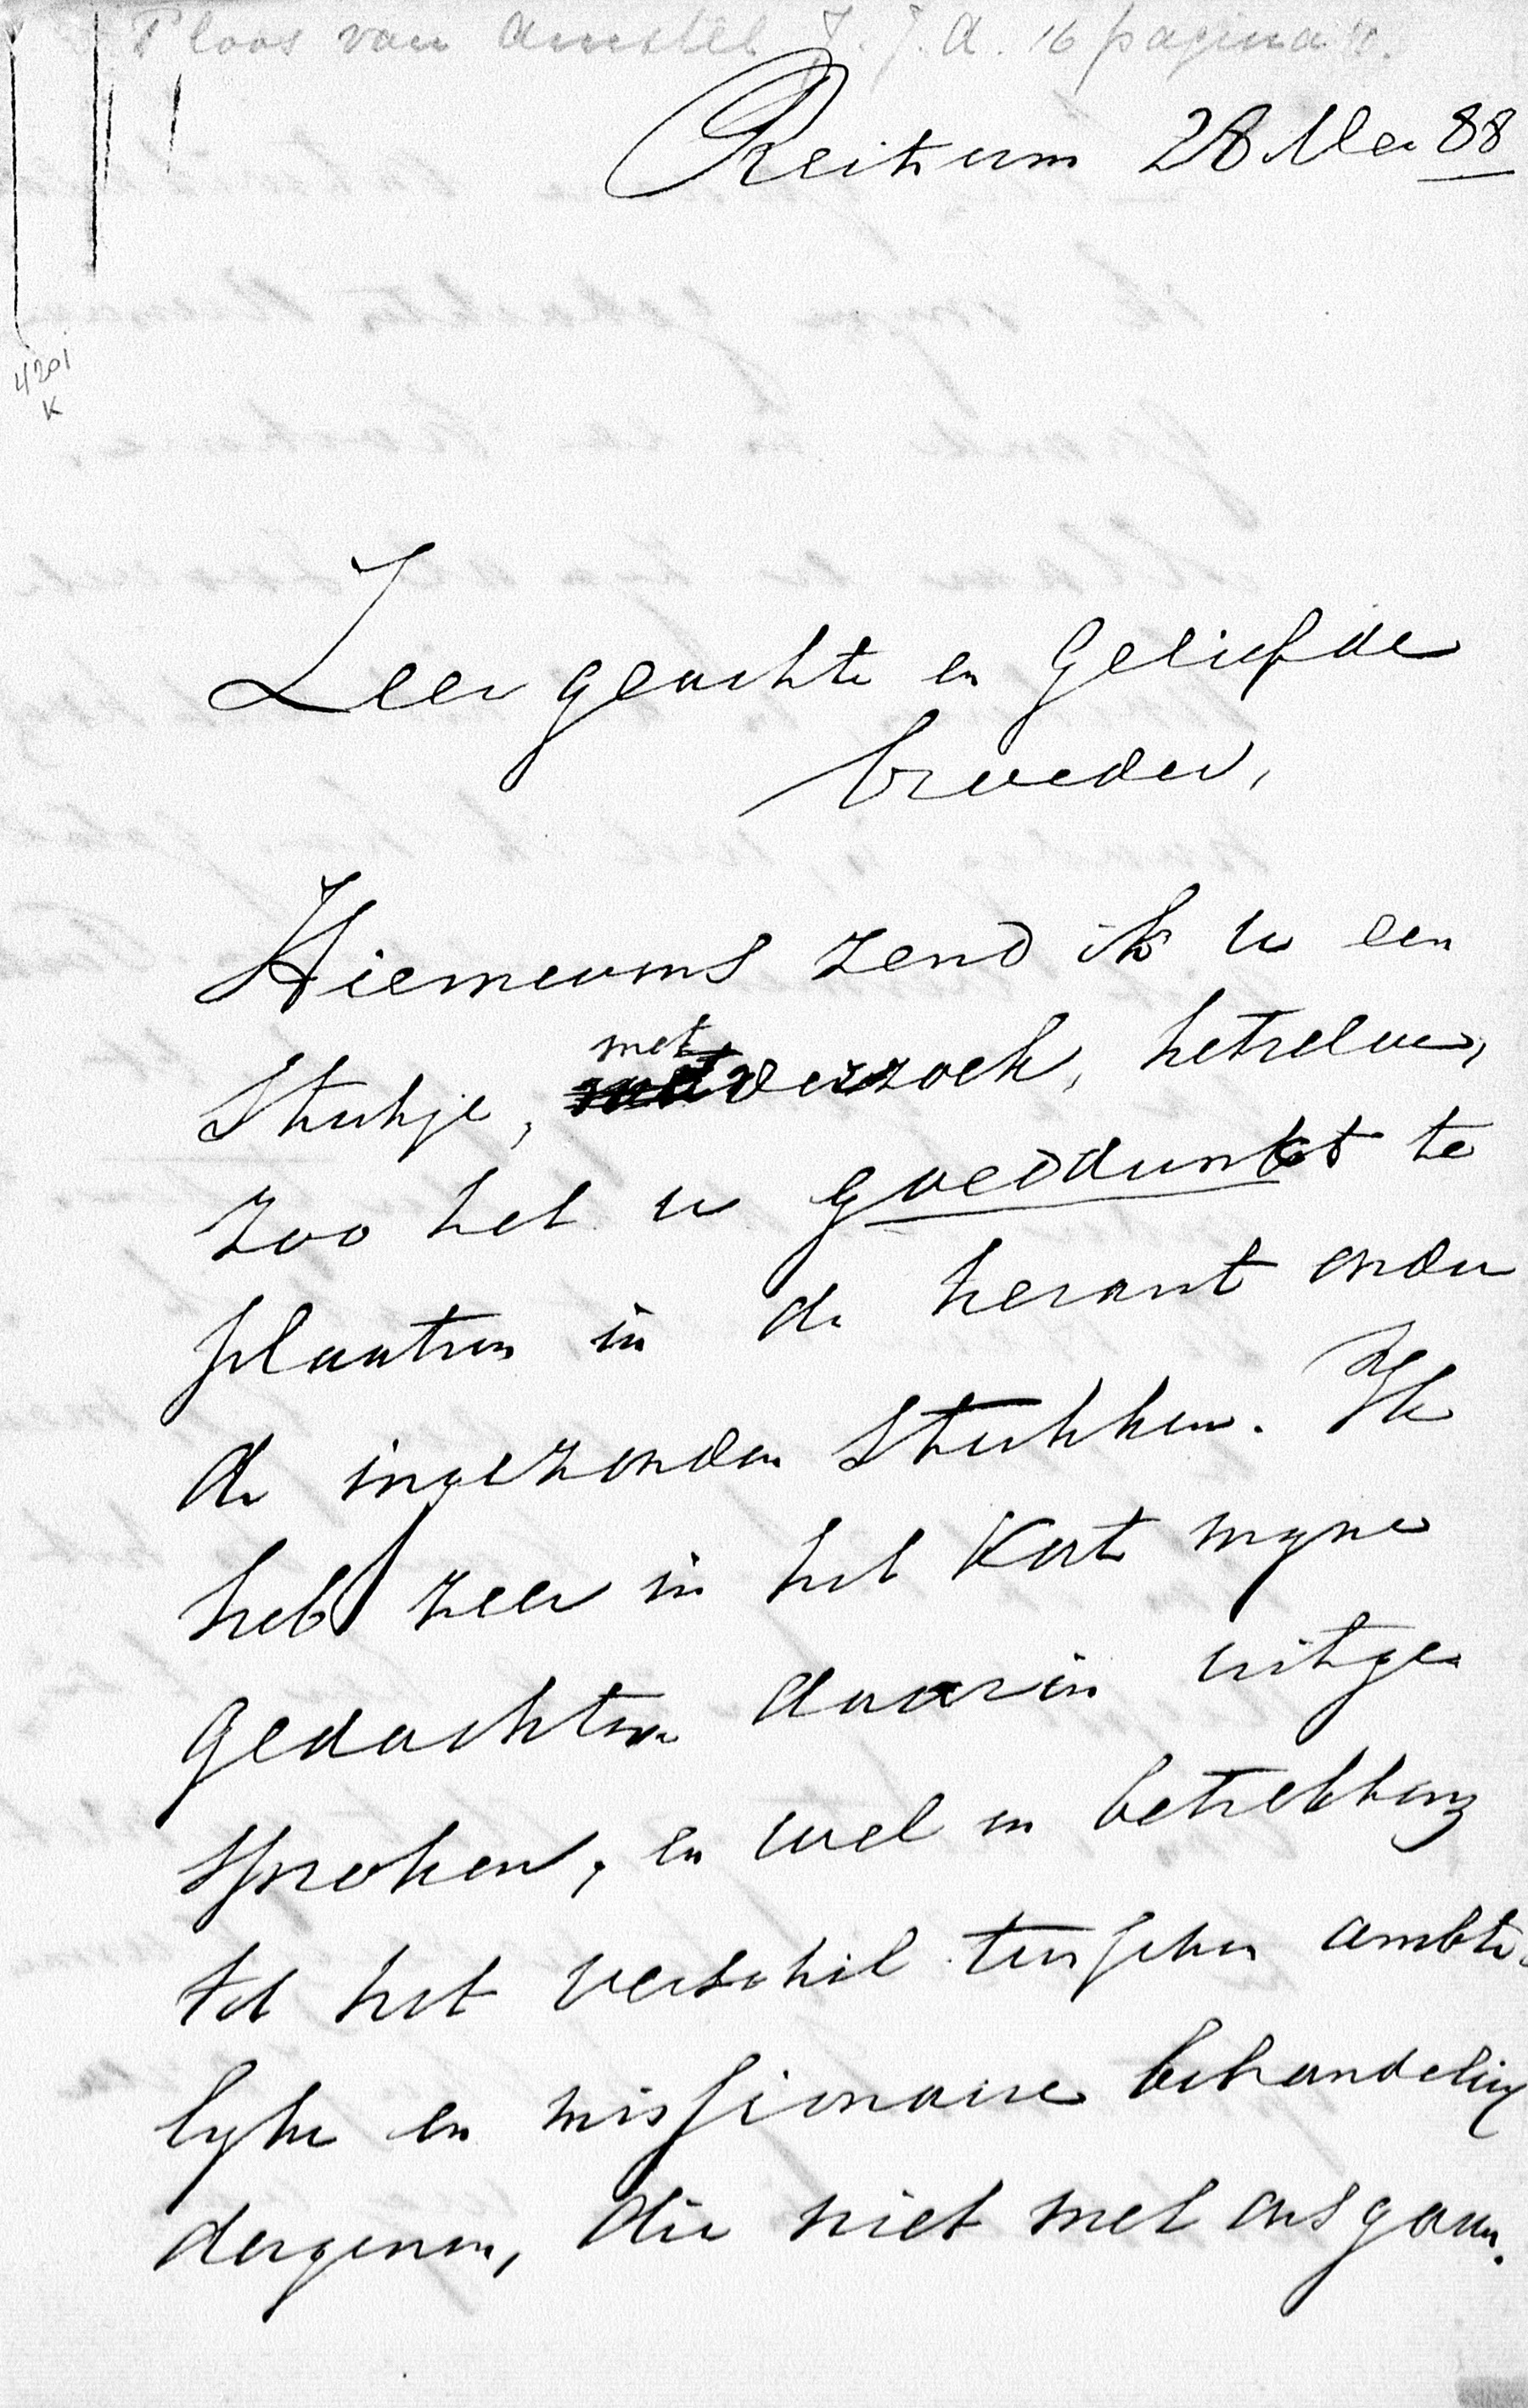 Ploos van Amstel J. J. A. 16 pagina's.
Reitsum 28 Mei 88
4201
K
Zeer geachte en Geliefde
broeder,
Hiernevens zend ik u een
Stukje, met verzoek, hetzelve,
zoo het u goeddunkt te
plaatsen in de heraut onder
de ingezonden Stukken. Ik
heb zeer in het Kort myne
gedachten daarin uitge-
sproken, en wel in betrekking
tot het verschil tusschen ambte-
lyke en missionaire behandeling
dergenen, die niet met ons gaan.